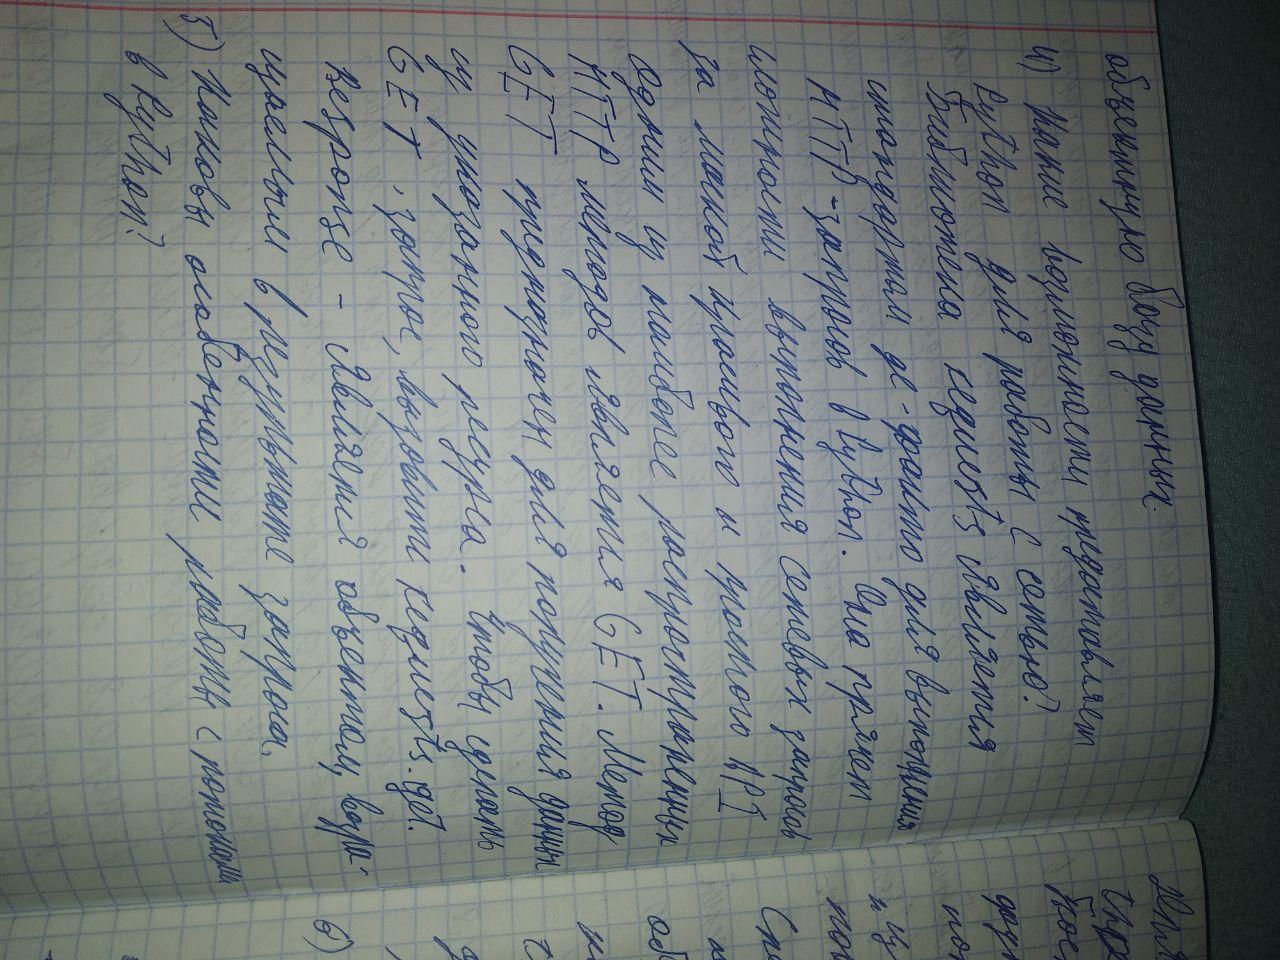 объектную базу данных.
4) Какие возможности предоставляет
Python для работы с сетью?
Библиотека requests является
стандартом де-факто для выполнения
HTTP-запросов в Python. Она прячет
сложности выполнения сетевых запросов
за маской красивого и простого API
Одним из наиболее распространенных
HTTP методов является GET. Метод
GET предназначен для получения данных
из указанного ресурса. Чтобы сделать
GET, запрос, вызовите requests.get.
Response - Является объектом, возвра-
щаемым в результате запроса.
5) Каковы особенности работы с потоками
в Python?
6)